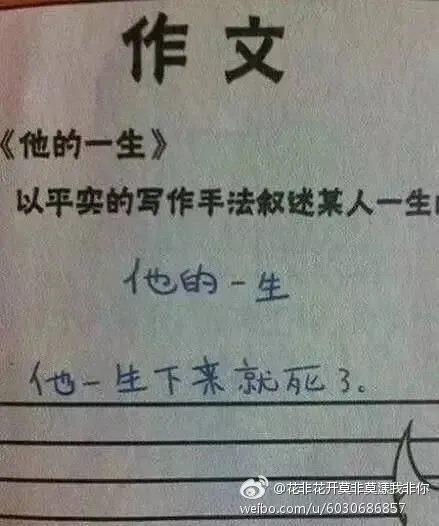 作文
《他的一生》
以平实的写作手法叙述某人一生
他的一生
他一生下来就死了。
@花非花开莫非莫漾我非你
weibo.com/u/6030686857